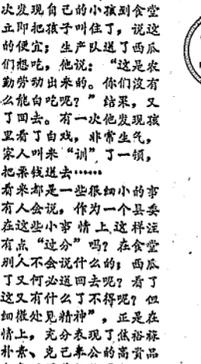 次发现自己的小孩到食堂
立即把孩子叫住了，说这
的便宜；生产队送了西瓜
们想吃，他说：“这是农
勤劳动出来的。你们没有
么能白吃呢？”结果，又
了回去。有一次他发现孩
里看了白戏，非常生气，
家人叫来“训”了一顿，
把票钱送去……
看来都是一些很细小的事
有人会说，作为一个县委
在这些小事情上这样注
有点“过分”吗？在食堂
别人不会说什么的；西瓜
了又何必退回去呢？看了
这又有什么了不得呢？但
细微处见精神”，正是在
情上，充分表现了焦裕禄
朴素、克己奉公的高贵品